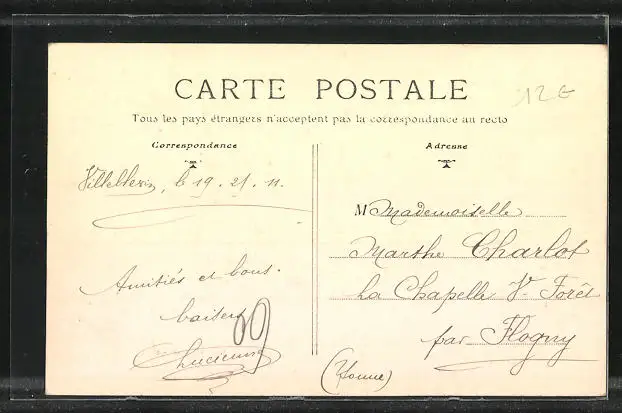 CARTE POSTALE
12€
Tous les pays étrangers n'acceptent pas la correspondance au recto
Correspondance
le 19. 21. 11.
Amitiés et bons
baisers
Lucienne
Adresse
M Mademoiselle
Marthe Charlot
La Chapelle Vlle Forêt
par Flogny
(Yonne)